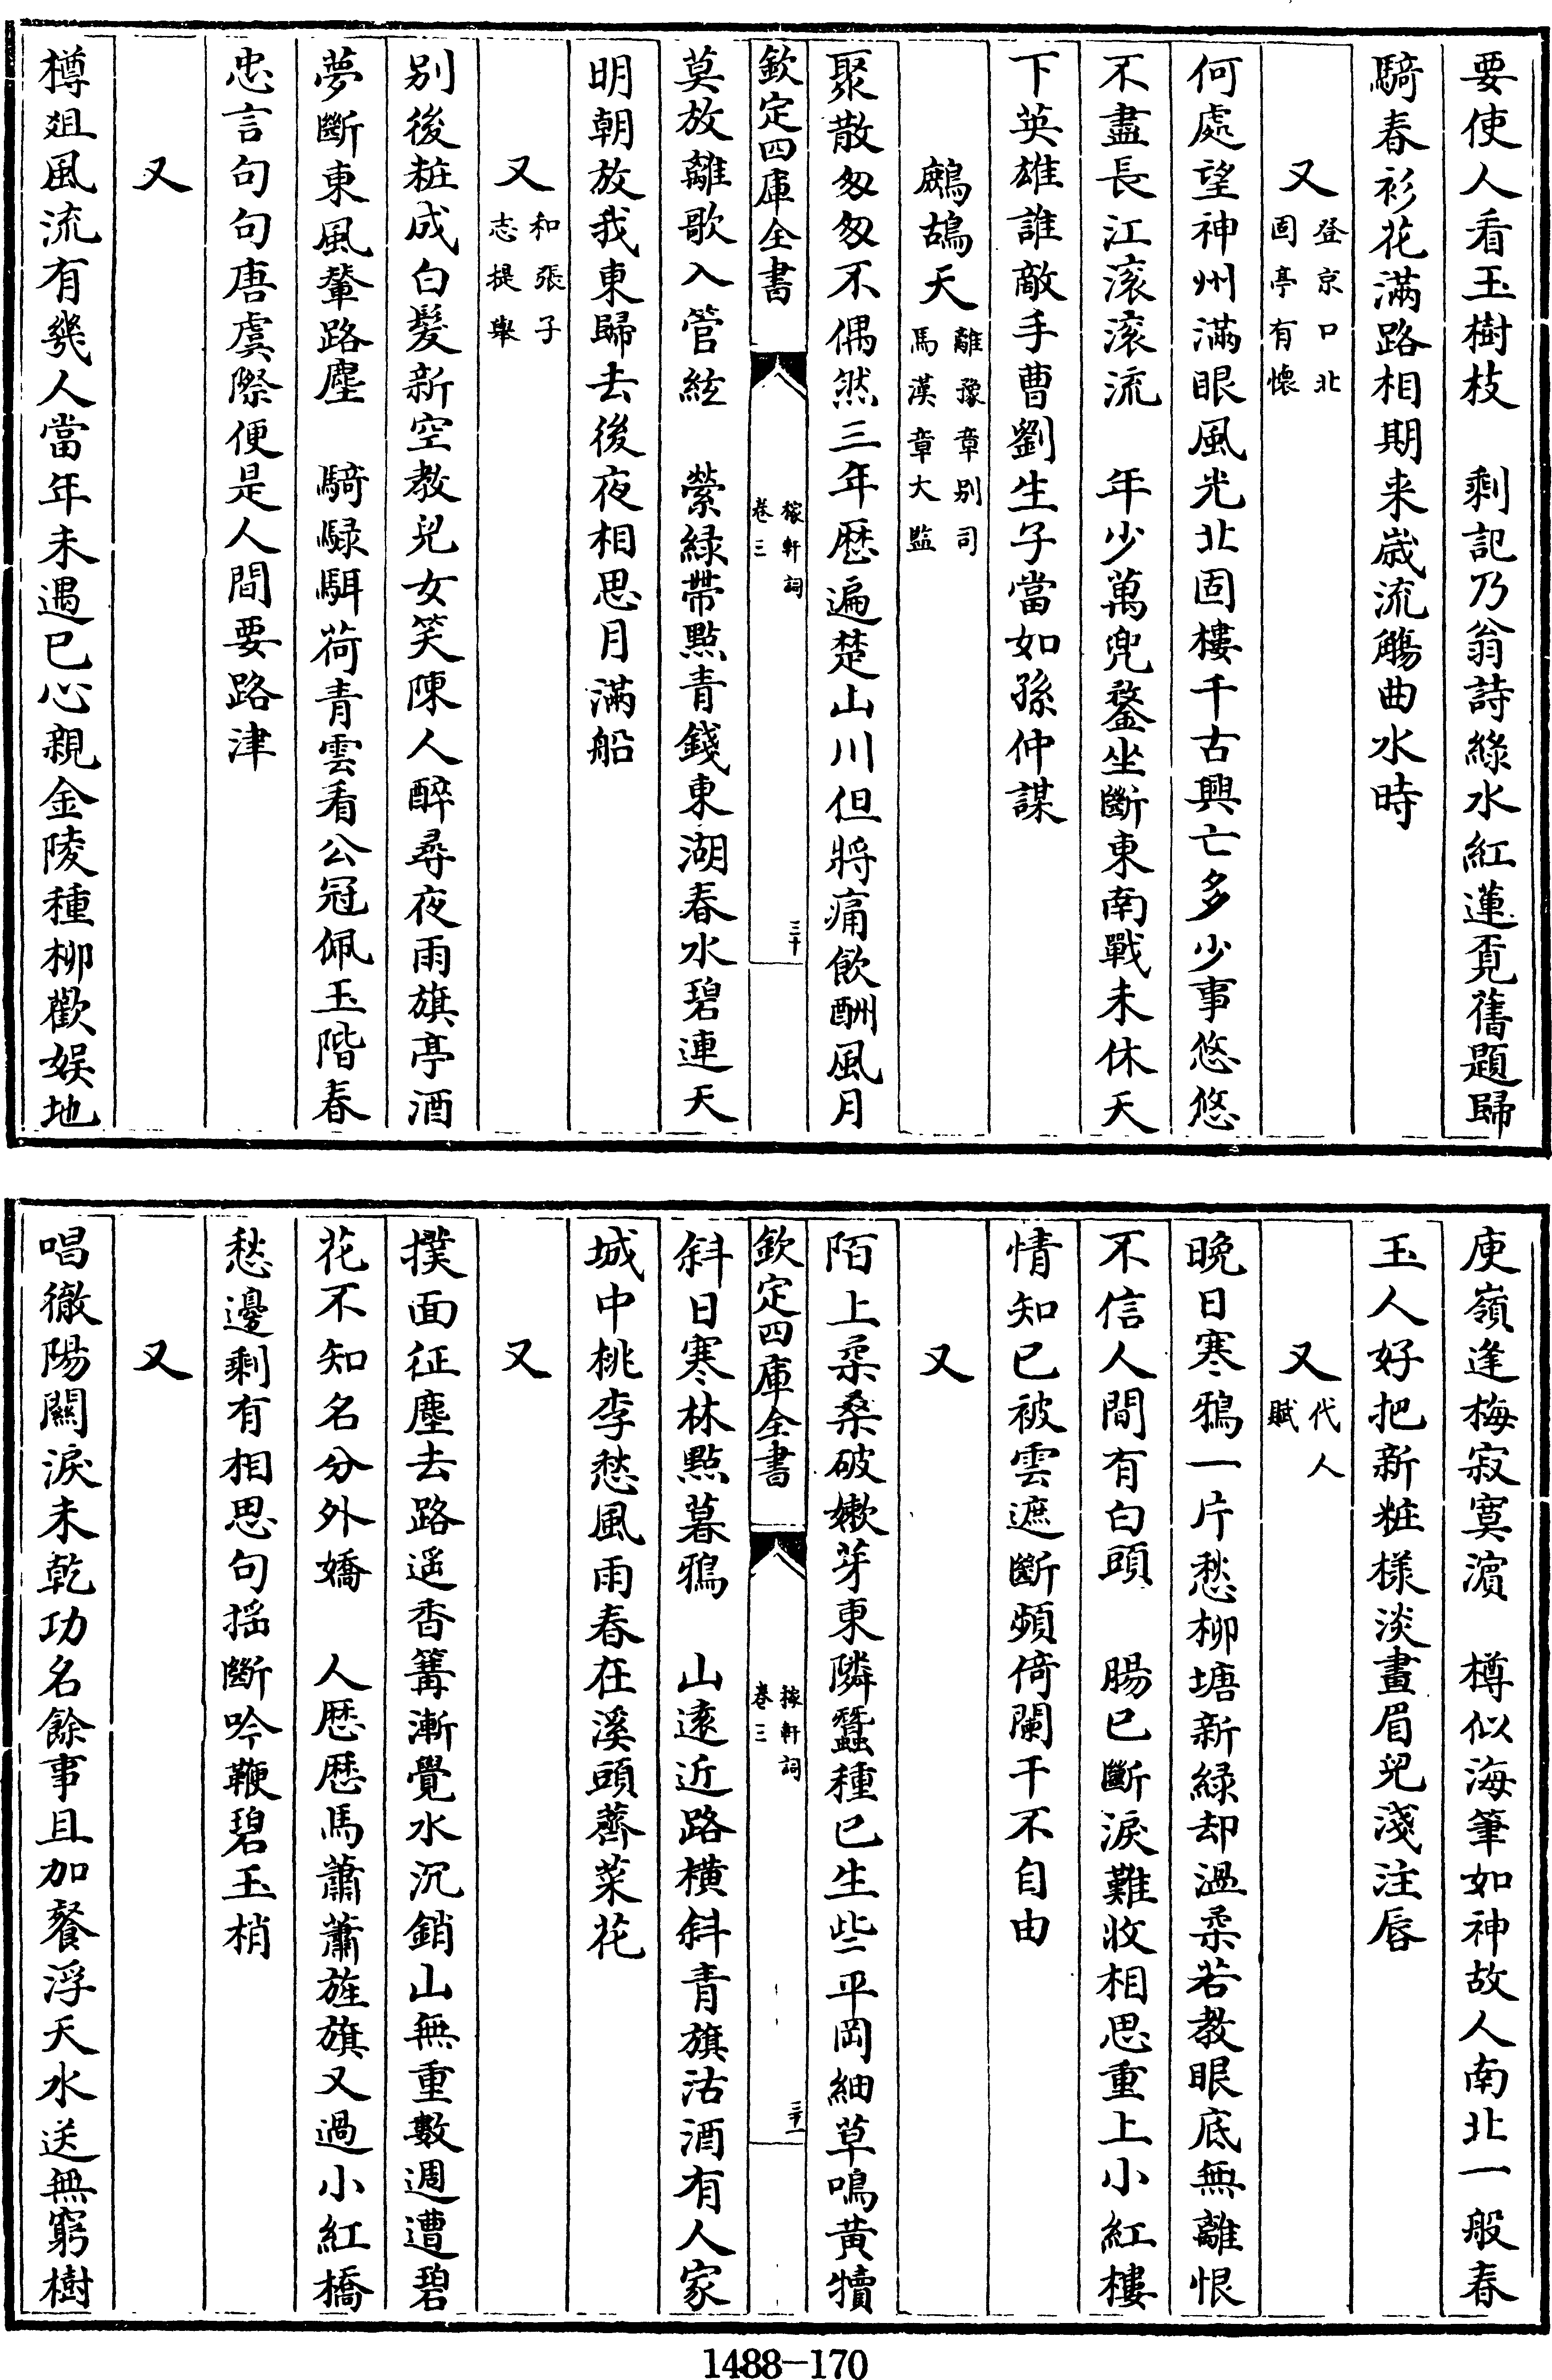 要使人看玉樹枝　剩記乃翁詩綠水紅蓮覔舊題歸
騎春衫花滿路相期来嵗流觴曲水時
又登京口北固亭有懷
何處望神州滿眼風光北固樓千古興亡多少事悠悠
不盡長江滚滚流　年少萬兜鍪坐斷東南戰未休天
下英雄誰敵手曹劉生子當如孫仲謀
鷓鴣天離豫章别司馬漢章大監
聚散匆匆不偶然三年歴遍楚山川但將痛飲酬風月
欽定四庫全書　稼軒詞卷三　三十
莫放離歌入管絃　縈緑帶點青錢東湖春水碧連天
明朝放我東歸去後夜相思月滿船
又和張子志提舉
别後粧成白髮新空教兒女笑陳人醉尋夜雨旗亭酒
夢斷東風輦路塵　騎騄駬荷青雲看公冠佩玉階春
忠言句句唐虞際便是人間要路津
又
樽俎風流有幾人當年未遇已心親金陵種柳歡娱地
庾嶺逢梅寂寞濵　樽似海筆如神故人南北一般春
玉人好把新粧様淡畫眉兒淺注唇
又代人賦
晚日寒鴉一片愁柳塘新緑却温柔若教眼底無離恨
不信人間有白頭　腸已斷淚難收相思重上小紅樓
情知已被雲遮斷頻倚闌干不自由
又
陌上柔桑破嫩芽東隣蠶種已生些平岡細草鳴黄犢
欽定四庫全書　稼軒詞卷三　三十一
斜日寒林點暮鴉　山遠近路橫斜青旗沽酒有人家
城中桃李愁風雨春在溪頭薺菜花
又
撲面征塵去路遥香篝漸覺水沉銷山無重數週遭碧
花不知名分外嬌　人歴歴馬蕭蕭旌旗又過小紅橋
愁邊剩有相思句揺斷吟鞭碧玉梢
又
唱徹陽闗淚未乾功名餘事且加餐浮天水送無窮樹
1488—170